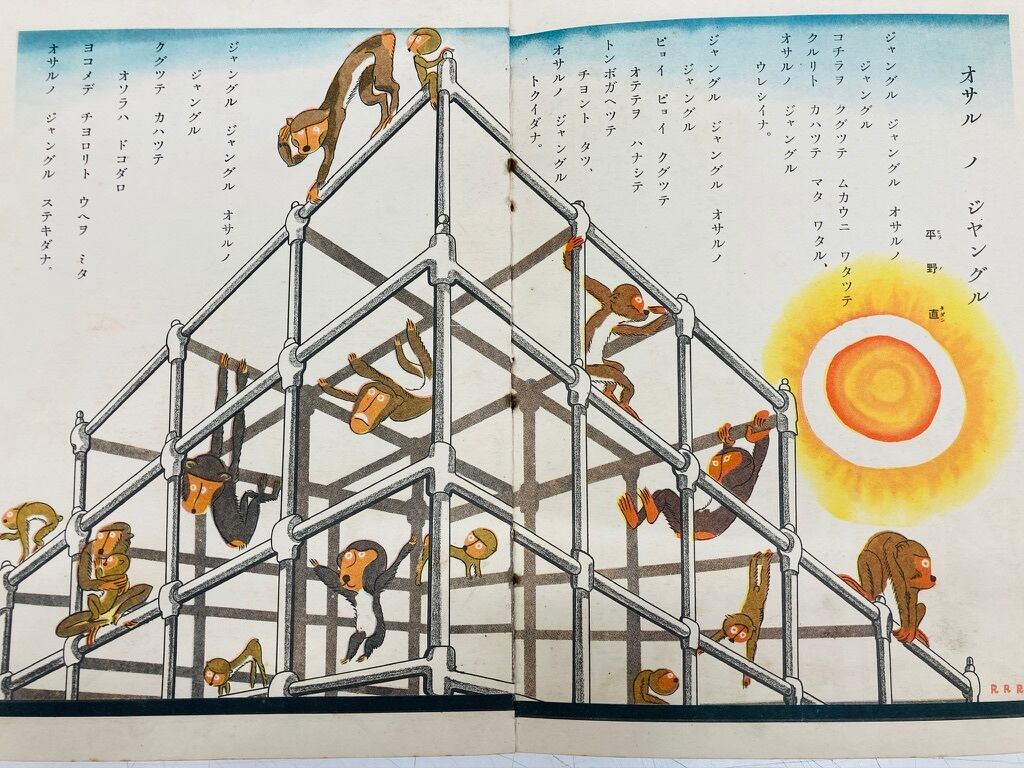 オサル ノ ジヤングル
平野直
ヒラノタダシ
ジャングル ジャングル オサルノ
ジャングル
コチラヲ クグツテ ムカウニ ワタツテ
クルリト カハツテ マタ ワタル、
オサルノ ジャングル
ウレシイナ。
ジャングル ジャングル オサルノ
ジャングル
ピョイ ピョイ クグツテ
オテテヲ ハナシテ
トンボガヘツテ
チヨント タツ、
オサルノ ジャングル
トクイダナ。
ジャングル ジャングル オサルノ
ジャングル
クグツテ カハツテ
オソラハ ドコダロ
ヨコメデ チヨロリト ウヘヲ ミタ
オサルノ ジャングル ステキダナ。
RRR